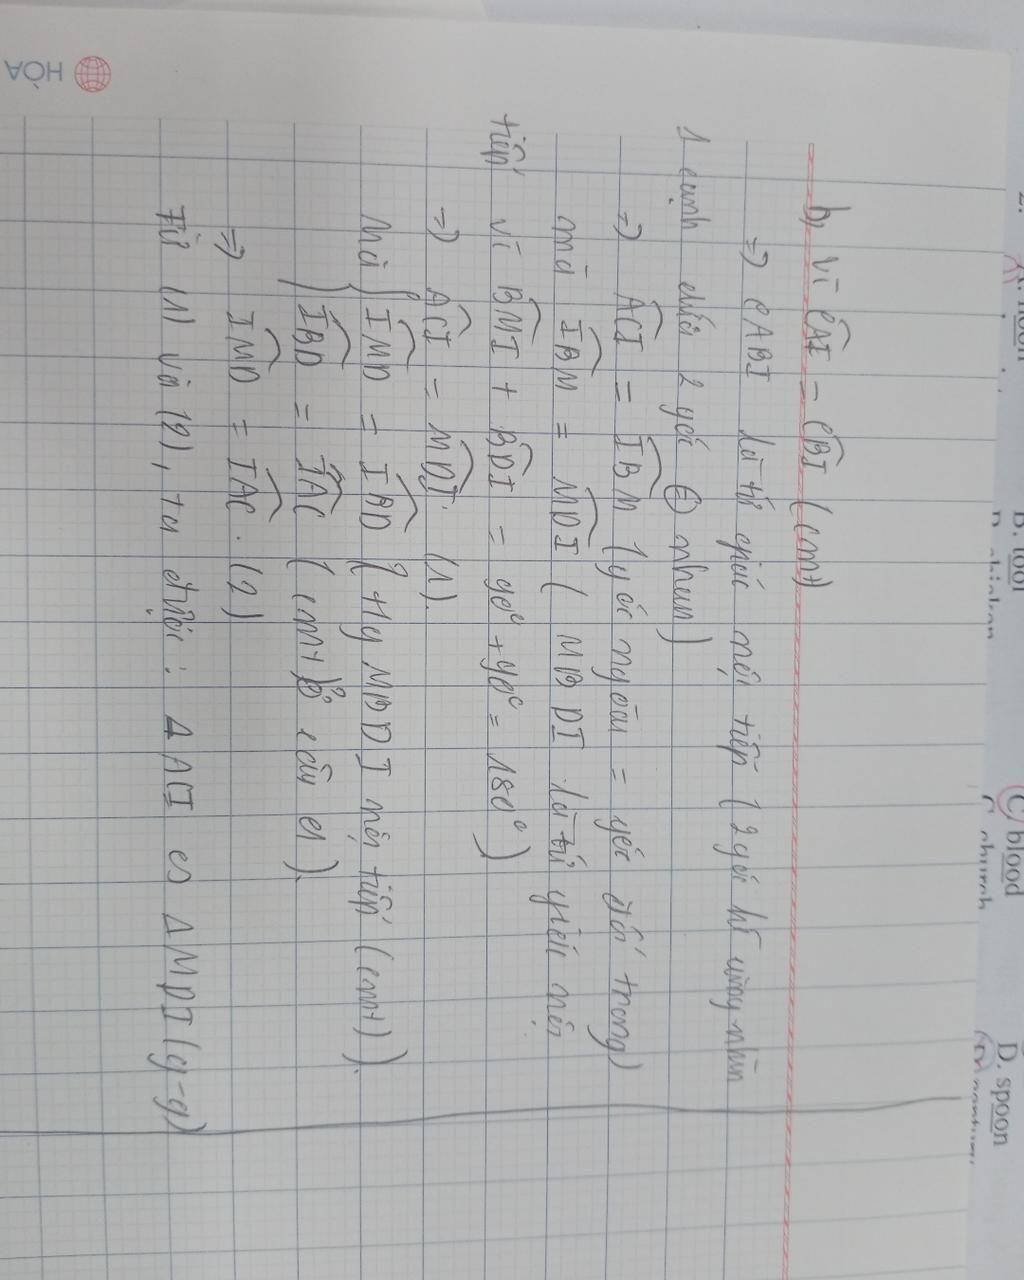 b, Vì CAI = CBI (cmt)
=> CABI là tứ giác nội tiếp (2 góc kề cùng nhìn
1 cạnh dưới 2 góc = nhau)
=> ACI = IBM (góc ngoài = góc đối trong)
mà IBM = MDI (MBDI là tứ giác nội
tiếp vì BMI + BDI = 90° + 90° = 180°)
=> ACI = MDI. (1).
Mà { IMD = IBD (tg MBDI nội tiếp (cmt)).
IBD = IAC (cmt ở câu a).
=> IMD = IAC. (2)
Từ (1) và (2), ta được: Δ ACI ∽ Δ MDI (g-g)
HÒA
2.
A. noon
B. tool
C. blood
D. spoon
C. church